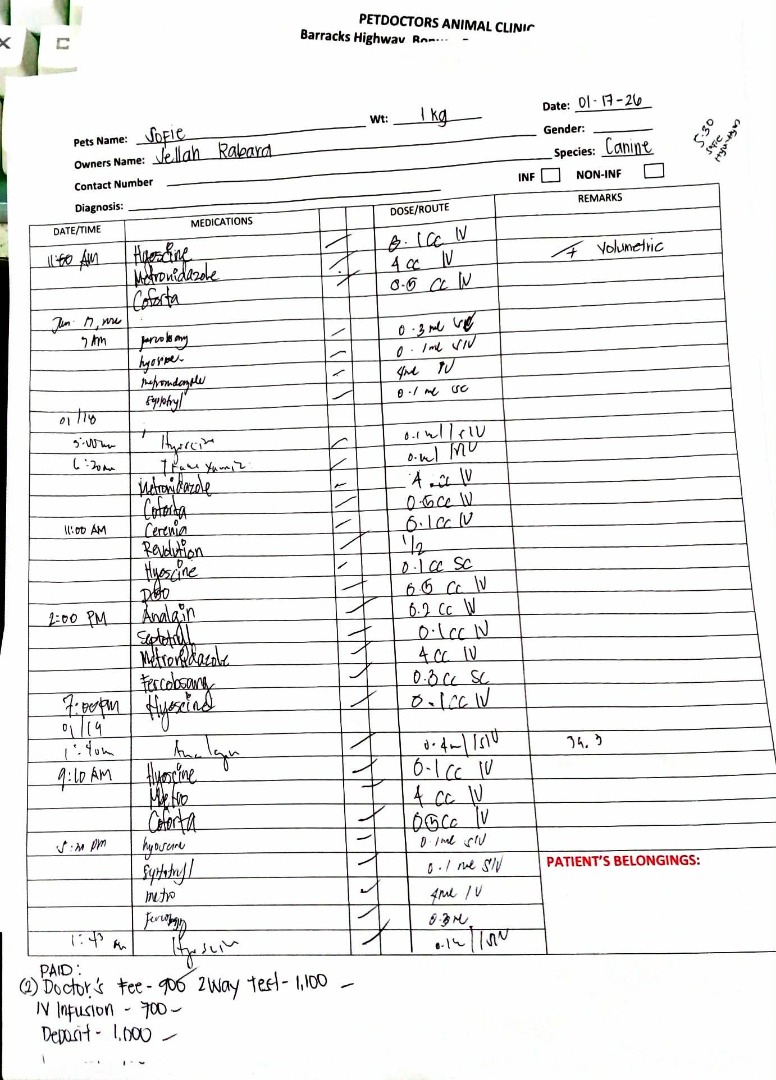 PETDOCTORS ANIMAL CLINIC
Barracks Highway
Pets Name: Sofie Wt: 1 kg Date: 01-17-26
Owners Name: Jellah Rabara Gender:
Contact Number Species: Canine
Diagnosis: INF NON-INF
5:30
DATE/TIME MEDICATIONS DOSE/ROUTE REMARKS
AM Hyoscine 0.1 cc IV + Volumetric
Metronidazole 4 cc IV
Coforta 0.5 cc IV
Jan 17,
7 AM 0.3 ml
0.1ml SIV
4ml IV
0.1 ml SC
01/18
5:00am Hyoscin 0.1ml/SIV
6:20am
Metronidazole 4 cc IV
Coforta 0.5cc IV
11:00 AM Cerenia 0.1cc IV
Revolution 1/2
Hyoscine 0.1 cc SC
0.5 cc IV
2:00 PM Analgin 0.2 cc IV
Septotryl 0.1cc IV
Metronidazole 4 cc IV
Fercobsang 0.3cc SC
7:00pm Hyoscine 0.1cc IV
01/19
1:40am Analgin 0.4ml/SIV 39.3
9:10 AM Hyoscine 0.1 cc IV
Metro 4 cc IV
Coforta 0.5cc IV
pm hyoscine 0.1ml SIV
0.1 ml SIV PATIENT'S BELONGINGS:
metro 4ml IV
0.3ml
1:43 Hyoscin
PAID:
(2) Doctor's Fee - 900 2Way Test - 1,100 -
IV Infusion - 700 -
Deposit - 1,000 -